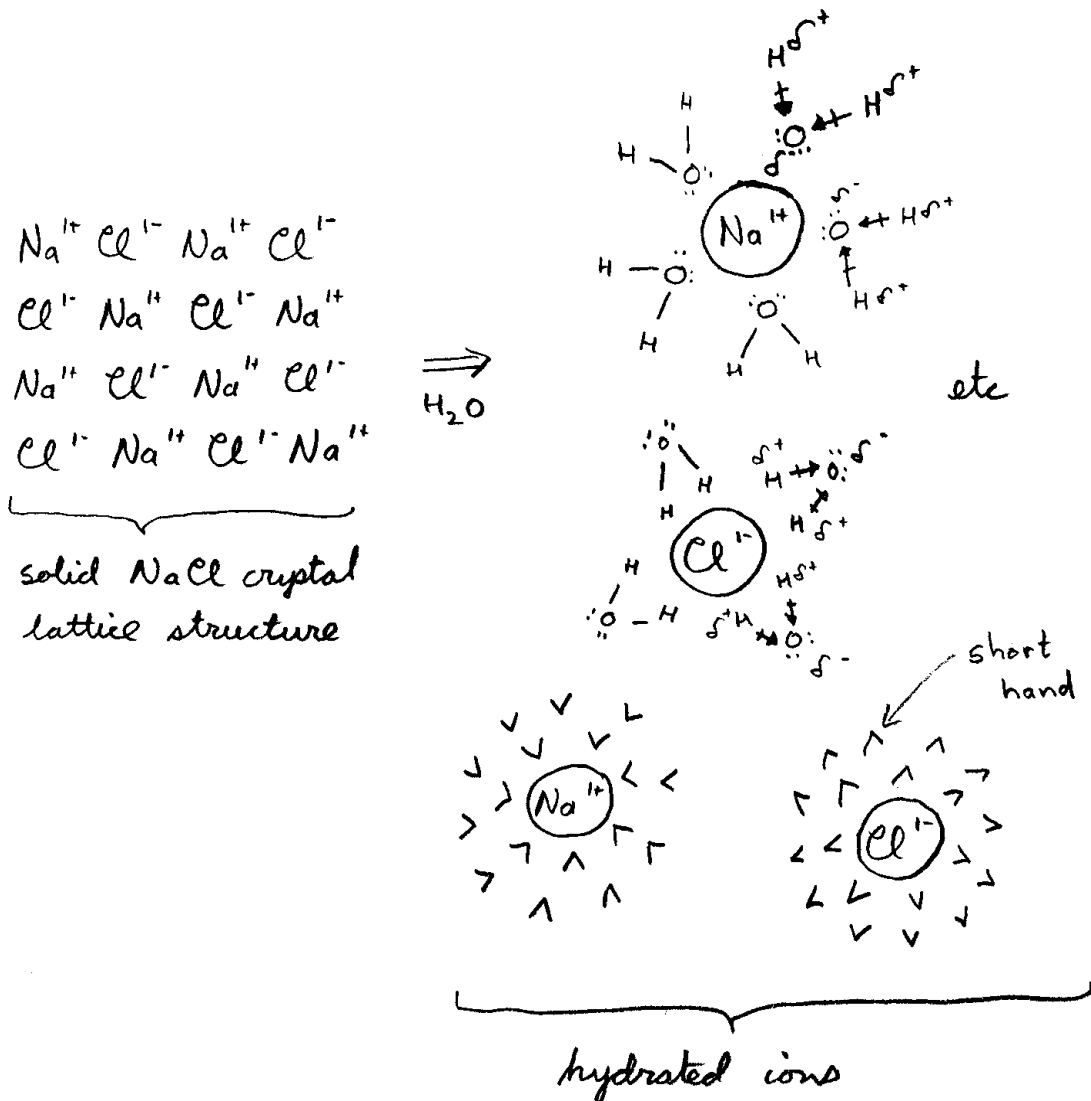 Na¹⁺ Cl¹⁻ Na¹⁺ Cl¹⁻
Cl¹⁻ Na¹⁺ Cl¹⁻ Na¹⁺
Na¹⁺ Cl¹⁻ Na¹⁺ Cl¹⁻
Cl¹⁻ Na¹⁺ Cl¹⁻ Na¹⁺
solid NaCl crystal
lattice structure
H₂O
H δ+
H H δ+
O
H O δ-
δ-
Na¹⁺ O H δ+
H O
H δ+
O
H
H H
etc
O δ+ O δ-
H H
H H δ+
Cl¹⁻
H H δ+
O H δ+ H O
δ-
short
hand
Na¹⁺
Cl¹⁻
hydrated ions